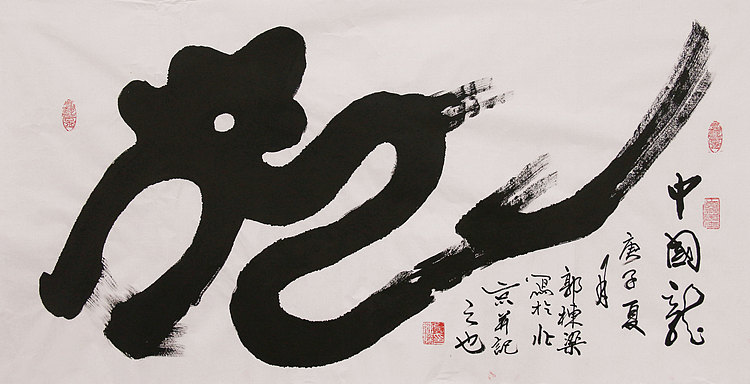 中國龍
庚子夏
月
郭棟梁
寫於北
京并記
之也